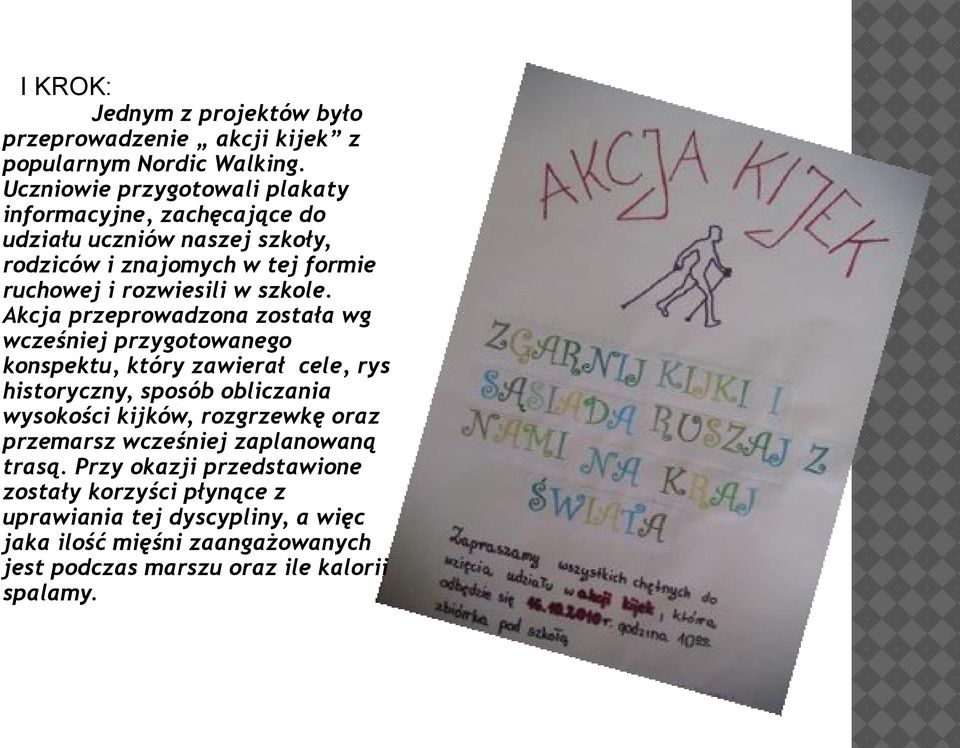 I KROK:
Jednym z projektów było
przeprowadzenie „ akcji kijek” z
popularnym Nordic Walking.
Uczniowie przygotowali plakaty
informacyjne, zachęcające do
udziału uczniów naszej szkoły,
rodziców i znajomych w tej formie
ruchowej i rozwiesili w szkole.
Akcja przeprowadzona została wg
wcześniej przygotowanego
konspektu, który zawierał cele, rys
historyczny, sposób obliczania
wysokości kijków, rozgrzewkę oraz
przemarsz wcześniej zaplanowaną
trasą. Przy okazji przedstawione
zostały korzyści płynące z
uprawiania tej dyscypliny, a więc
jaka ilość mięśni zaangażowanych
jest podczas marszu oraz ile kalorii
spalamy.
AKCJA KIJEK
ZGARNIJ KIJKI I
SĄSIADA RUSZAJ Z
NAMI NA KRAJ
ŚWIATA
Zapraszamy wszystkich chętnych do
wzięcia udziału w akcji kijek, która
odbędzie się 16.10.2010r. godzina 10⁰⁰
zbiórka pod szkołą